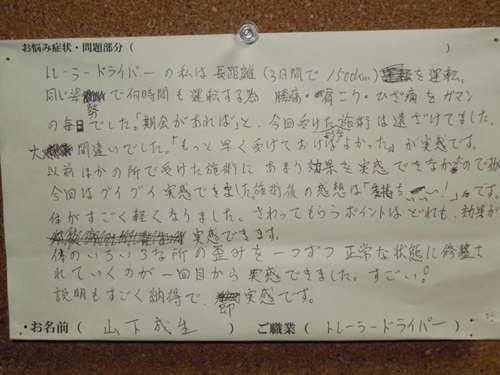 お悩み症状・問題部分（　　　）
トレーラードライバーの私は長距離（3日間で1500km）を運転。
同じ姿勢で何時間も運転する為 腰痛・肩こり・ひざ痛をガマン
の毎日でした。「期会があれば」と、今回受けた施術は遠ざけてました。
大間違いでした。「もっと早く受けておけばよかった。」が実感です。
以前ほかの所で受けた施術にあまり効果を実感できなかったので
今回はグイグイ実感できました。施術後の感想は「気持ちいい！」です。
体がすごく軽くなりました。さわってもらうポイントはどれも、効果が
実感できます。
体のいろいろな所の歪みを一つずつ正常な状態に修整さ
れていくのが一回目から実感できました。すごい！
説明もすごく納得で、即実感です。
・お名前（ 山下 成生 ） ご職業（ トレーラードライバー ）